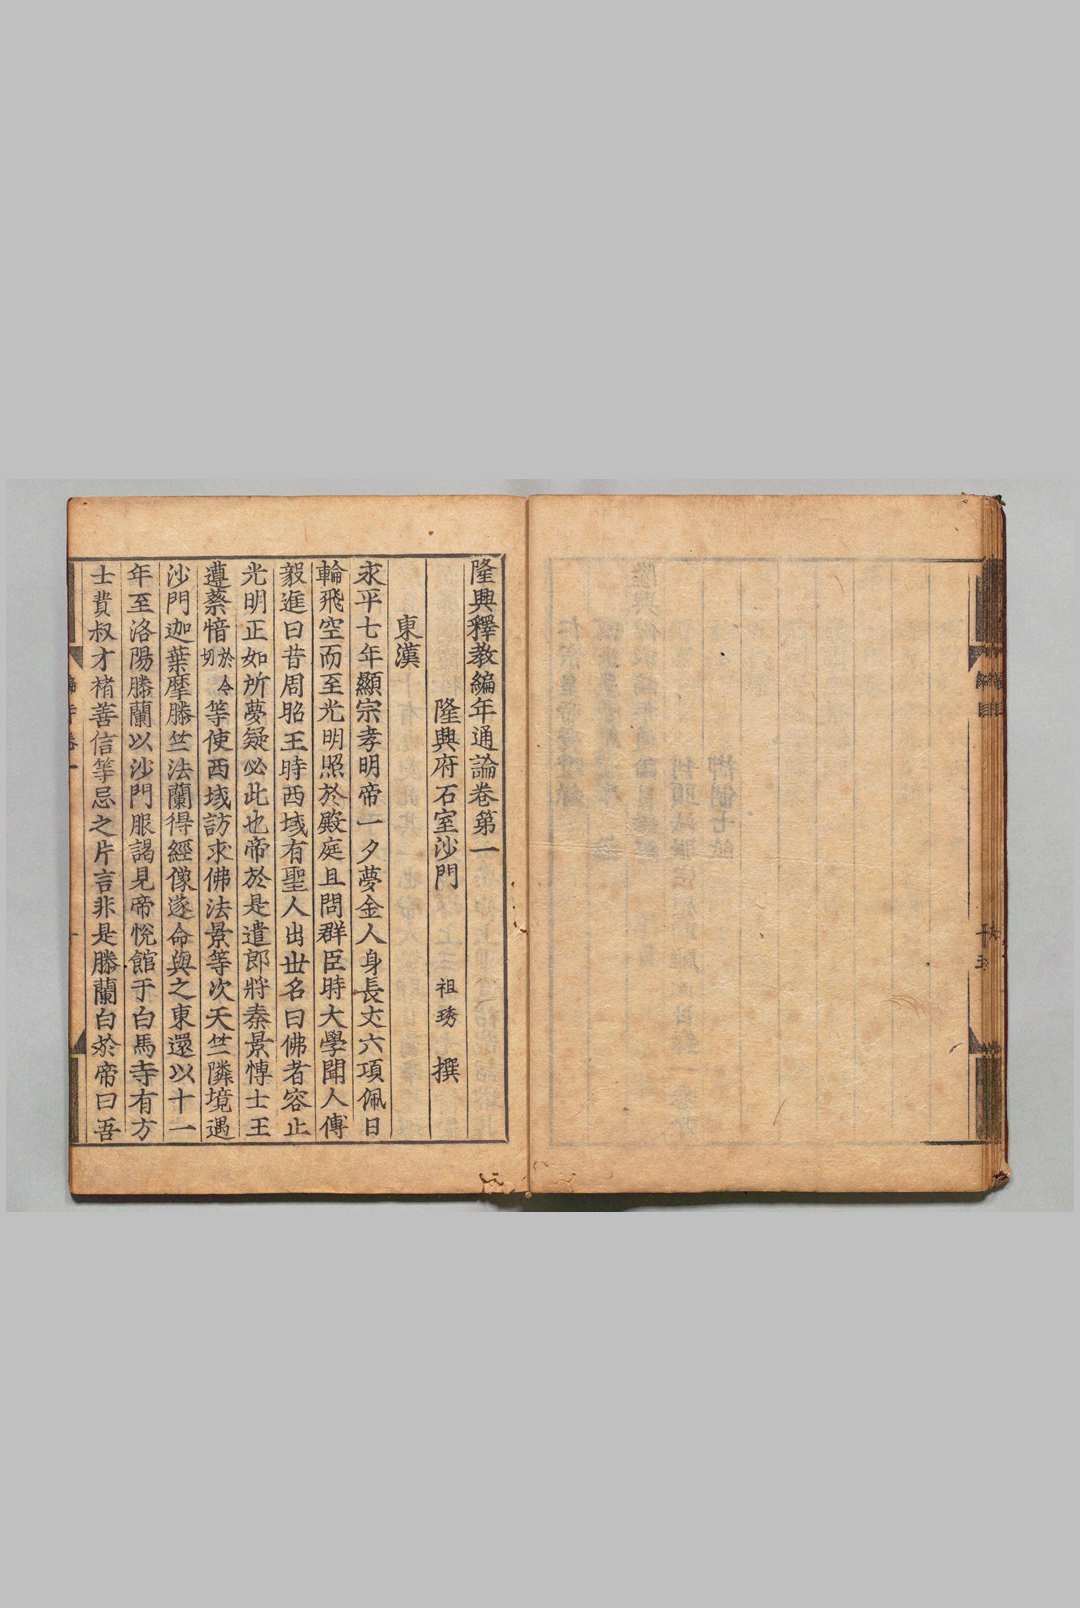 隆興釋教編年通論卷第一
隆興府石室沙門 祖琇 撰
東漢
永平七年顯宗孝明帝一夕夢金人身長丈六項佩日
輪飛空而至光明照於殿庭且問群臣時大學聞人傅
毅進曰昔周昭王時西域有聖人出世名曰佛者容止
光明正如所夢疑必此也帝於是遣郎將秦景愽士王
遵蔡愔於令切等使西域訪求佛法景等次天竺隣境遇
沙門迦葉摩騰竺法蘭得經像遂命與之東還以十一
年至洛陽騰蘭以沙門服謁見帝悅館于白馬寺有方
士費叔才褚善信等忌之片言非是騰蘭白於帝曰吾